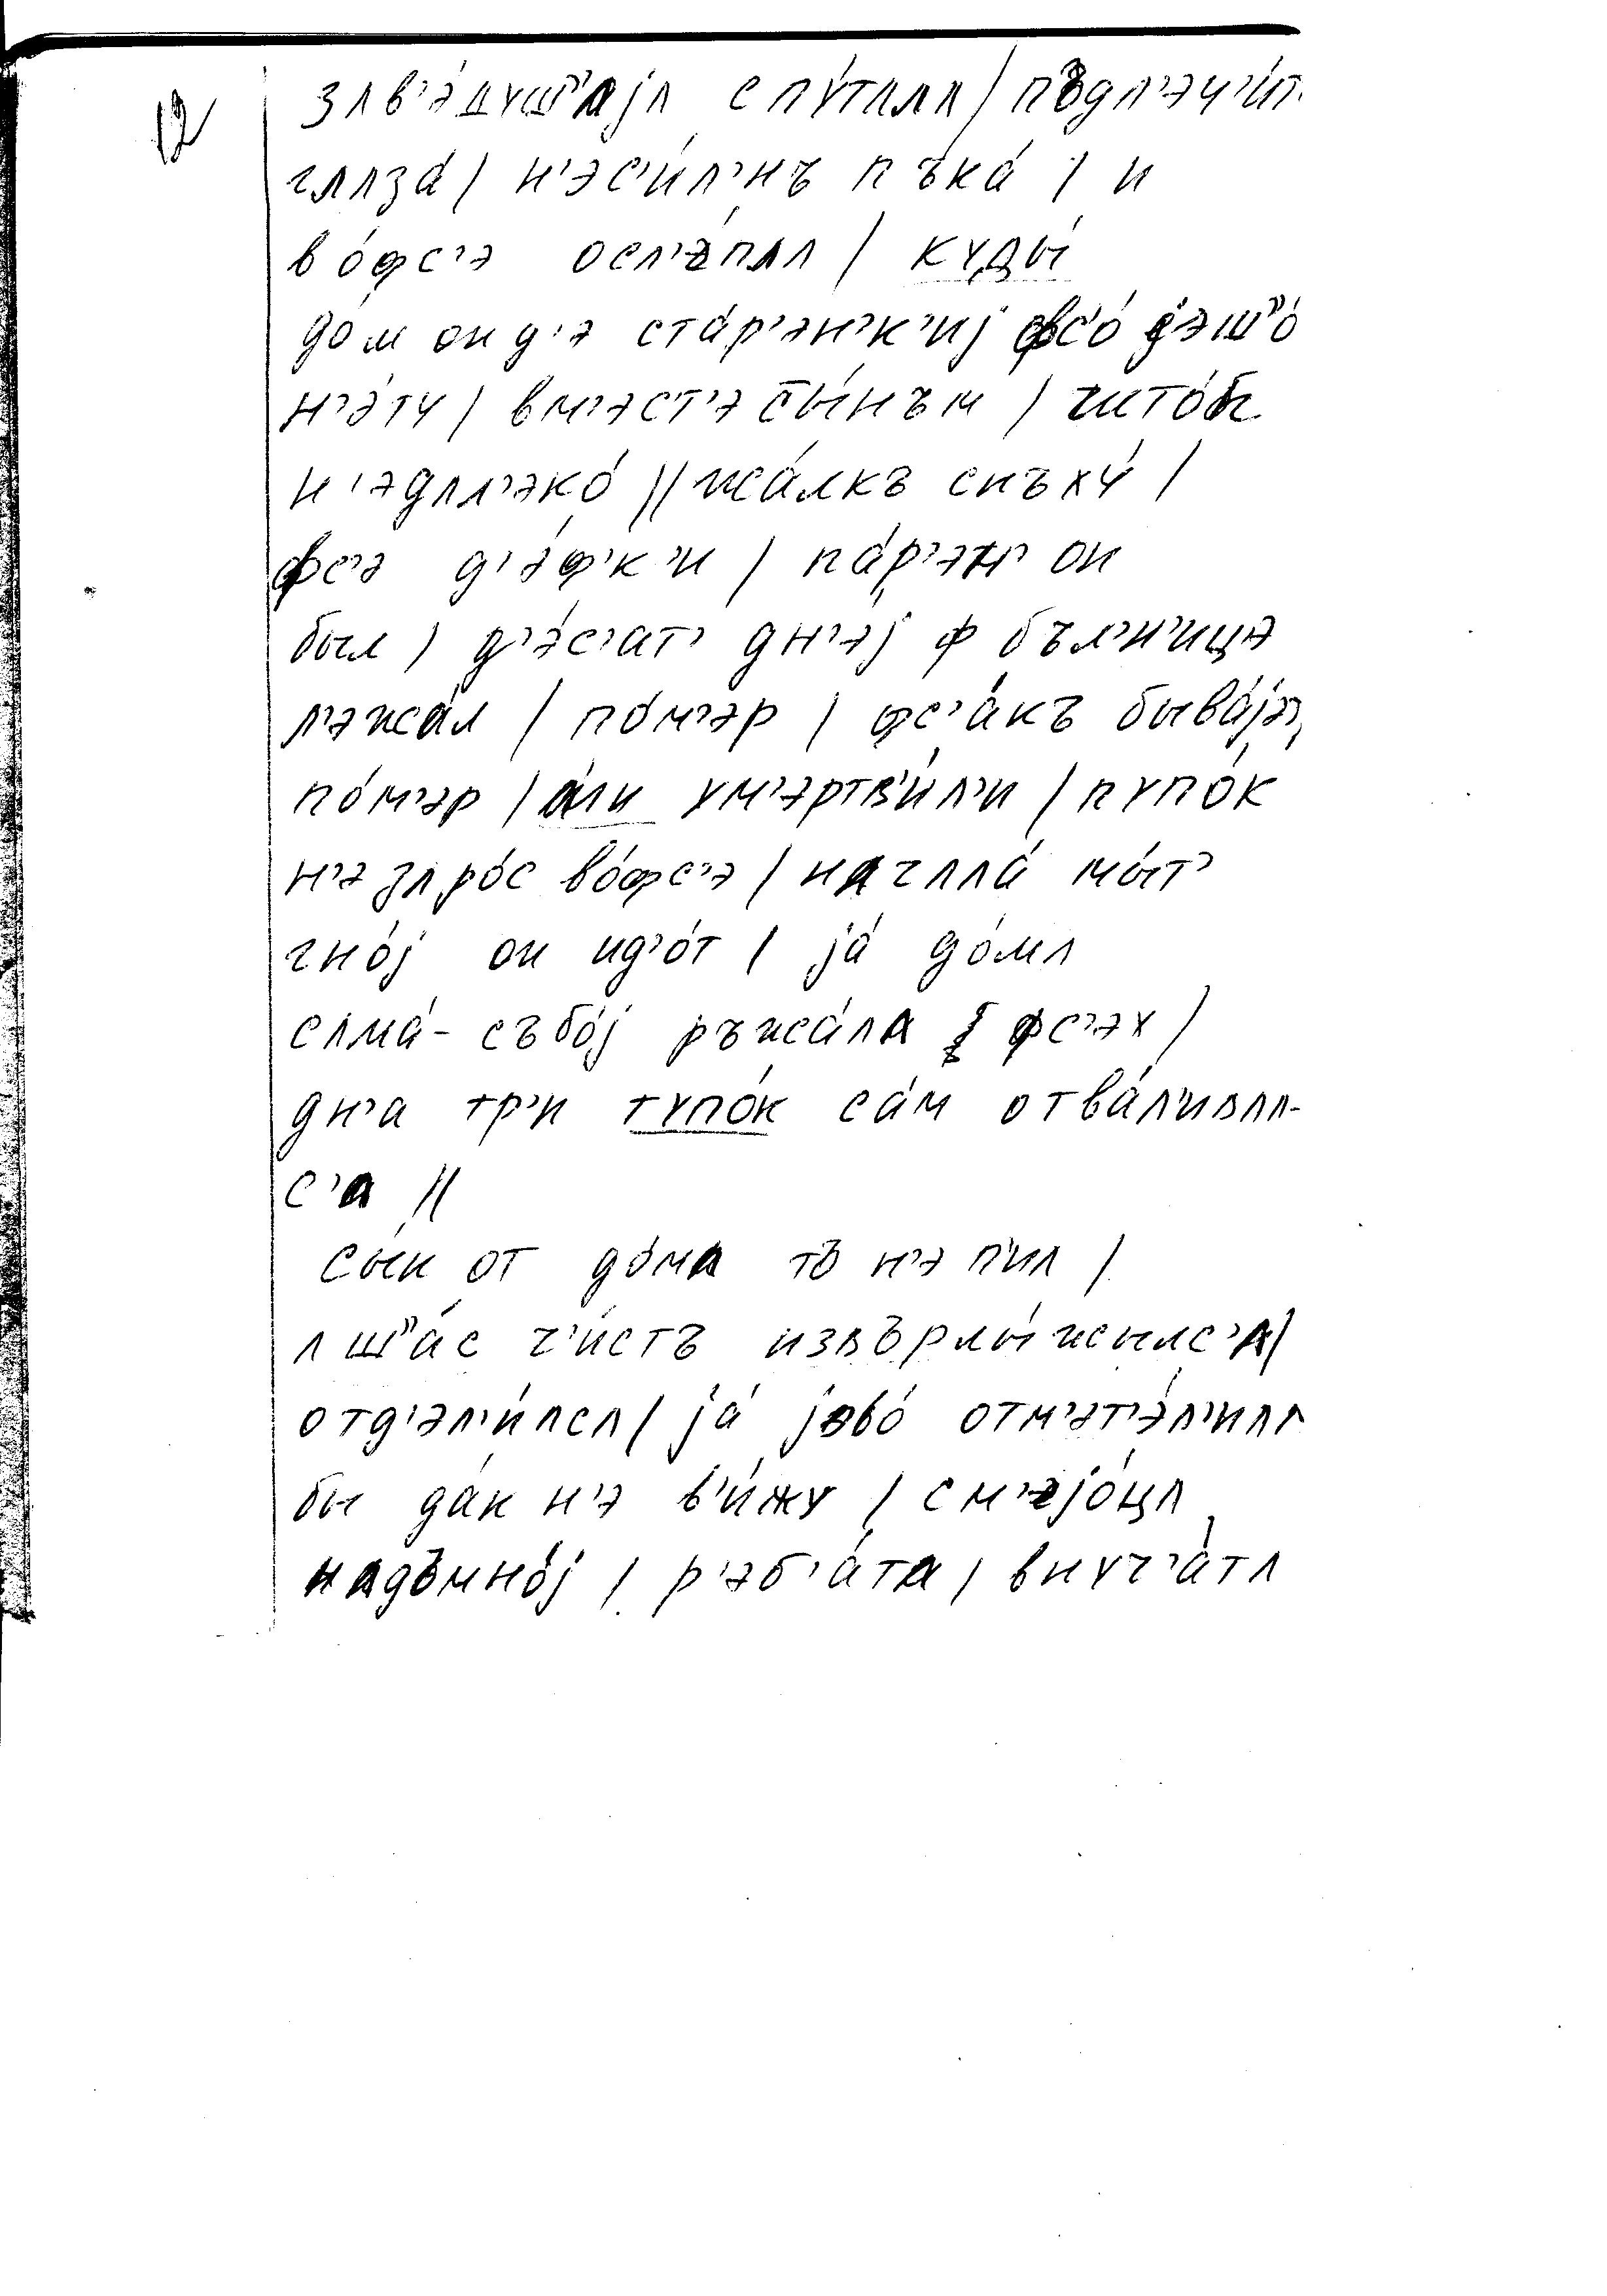 12
зʌв'э́душʼʼаjʌ спу́тʌлʌ / пъдл'эч'и́т'
глʌза́ / н'эс'и́л'нъ пъка́ / и
во́фс'э осл'э́плʌ / куды́
до́м он д'э ста́р'эн'к'иj фс'о́ jэшʼʼо́
н'э́ту / вм'эст'э сы́нъм / што́бы
н'эдʌл'эко́ // жа́лкъ снъху́ /
фс'э д'э́ф'к'и / па́р'эн' он
был / д'э́с'ат' дн'эj ф бъл'н'ицэ
л'эжа́л / по́м'эр / фс'а́къ быва́jэт,
по́м'эр / а́ли ум'эртв'и́л'и / пупо́к
н'э зʌро́с во́фс'э / нʌчʌла́ мы́т'
гно́j он ид'о́т / jа́ до́мʌ
сʌма́- събо́j ръжа́лʌ фс'эх /
дн'а тр'и тупо́к са́м отва́л'ивʌл-
с'а //
сы́н от до́ма тъ н'э п'ил /
ʌ шʼʼа́с ч'и́стъ извърлы́жылс'ʌ /
отд'эл'и́лсʌ / jа́ jэво́ отм'эт'э́л'илʌ
бы да́к н'э в'и́жу / см'эjо́цʌ
нʌдъмно́j / р'эб'а́та / внуч'а́тʌ